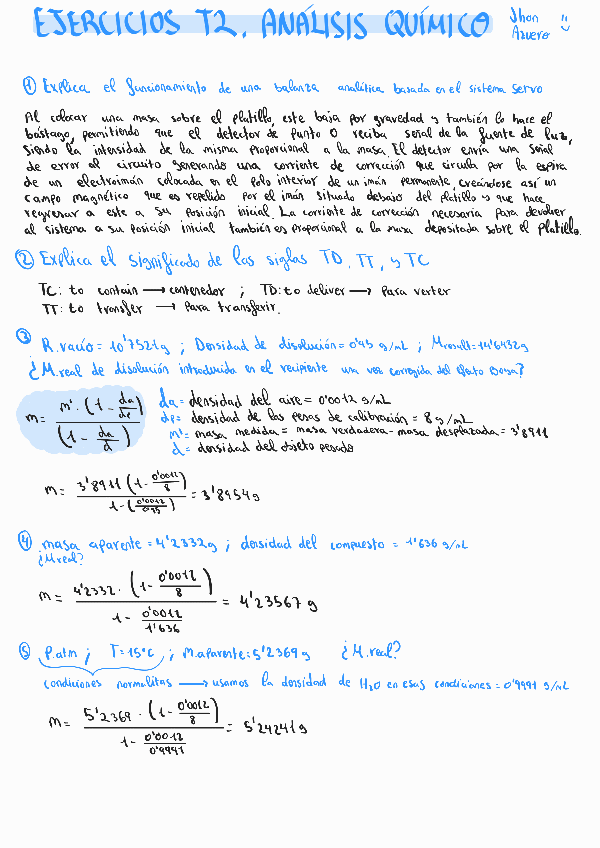 EJERCICIOS T2. ANÁLISIS QUÍMICO
Jhon
Azuero
① Explica el funcionamiento de una balanza analítica basada en el sistema servo
Al colocar una masa sobre el platillo, este baja por gravedad y también lo hace el
bástago, permitiendo que el detector de punto 0 reciba señal de la fuente de luz,
siendo la intensidad de la misma proporcional a la masa. El detector envía una señal
de error al circuito generando una corriente de corrección que circula por la espira
de un electroimán colocada en el polo interior de un imán permanente, creándose así un
campo magnético que es repelido por el imán situado debajo del platillo y que hace
regresar a este a su posición inicial. La corriente de corrección necesaria para devolver
al sistema a su posición inicial también es proporcional a la masa depositada sobre el platillo.
② Explica el significado de las siglas TD, TT, y TC
TC: to contain → contenedor ; TD: to deliver → para verter
TT: to transfer → para transferir.
③ R.vacío = 10'7521g ; Densidad de disolución = 0'95 g/mL ; Mresult = 14'6432g
¿M.real de disolución introducida en el recipiente una vez corregida del efecto Boya?
m = m' · (1 - da/dp) / (1 - da/d)
da = densidad del aire = 0'0012 g/mL
dp = densidad de las pesas de calibración = 8 g/mL
m' = masa medida = masa verdadera - masa desplazada = 3'8911
d = densidad del objeto pesado
m = 3'8911 (1 - 0'0012/8) / 1 - (0'0012/0'95) = 3'8954 g
④ masa aparente = 4'2332g ; densidad del compuesto = 1'636 g/mL
¿M.real?
m = 4'2332 · (1 - 0'0012/8) / 1 - 0'0012/1'636 = 4'23567 g
⑤ P.atm ; T = 15ºC ; M.aparente = 5'2369 g ¿M.real?
condiciones normalitas → usamos la densidad de H2O en esas condiciones = 0'9991 g/mL
m = 5'2369 · (1 - 0'0012/8) / 1 - 0'0012/0'9991 = 5'24241 g